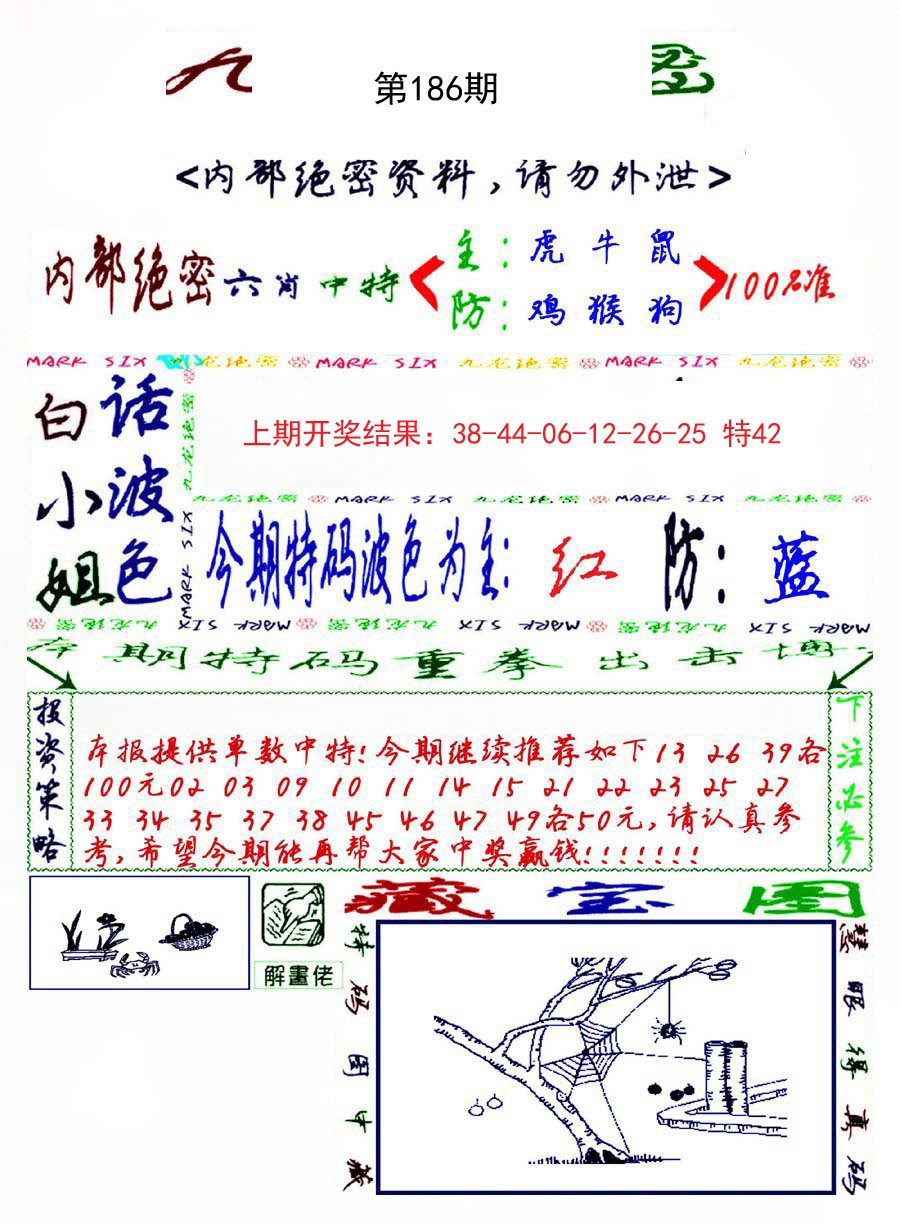 九 密
第186期
<内部绝密资料,请勿外泄>
内部绝密六肖中特 主:虎 牛 鼠
防:鸡 猴 狗
100%准
MARK SIX 九龙绝密 MARK SIX 九龙绝密 MARK SIX 九龙绝密
白小姐
话波色
九龙绝密 MARK SIX
上期开奖结果：38-44-06-12-26-25 特42
九龙绝密 MARK SIX 九龙绝密 MARK SIX 九龙绝密
今期特码波色为主: 红 防: 蓝
九龙绝密 MARK SIX 九龙绝密 MARK SIX 九龙绝密 MARK SIX
本期特码重拳出击博
投资策略
本报提供单数中特!今期继续推荐如下13 26 39各
100元02 03 09 10 11 14 15 21 22 23 25 27
33 34 35 37 38 45 46 47 49各50元,请认真参
考,希望今期能再帮大家中奖赢钱!!!!!!!
下注必参
解畫佬
藏宝图
特码图中藏
慧眼得真码